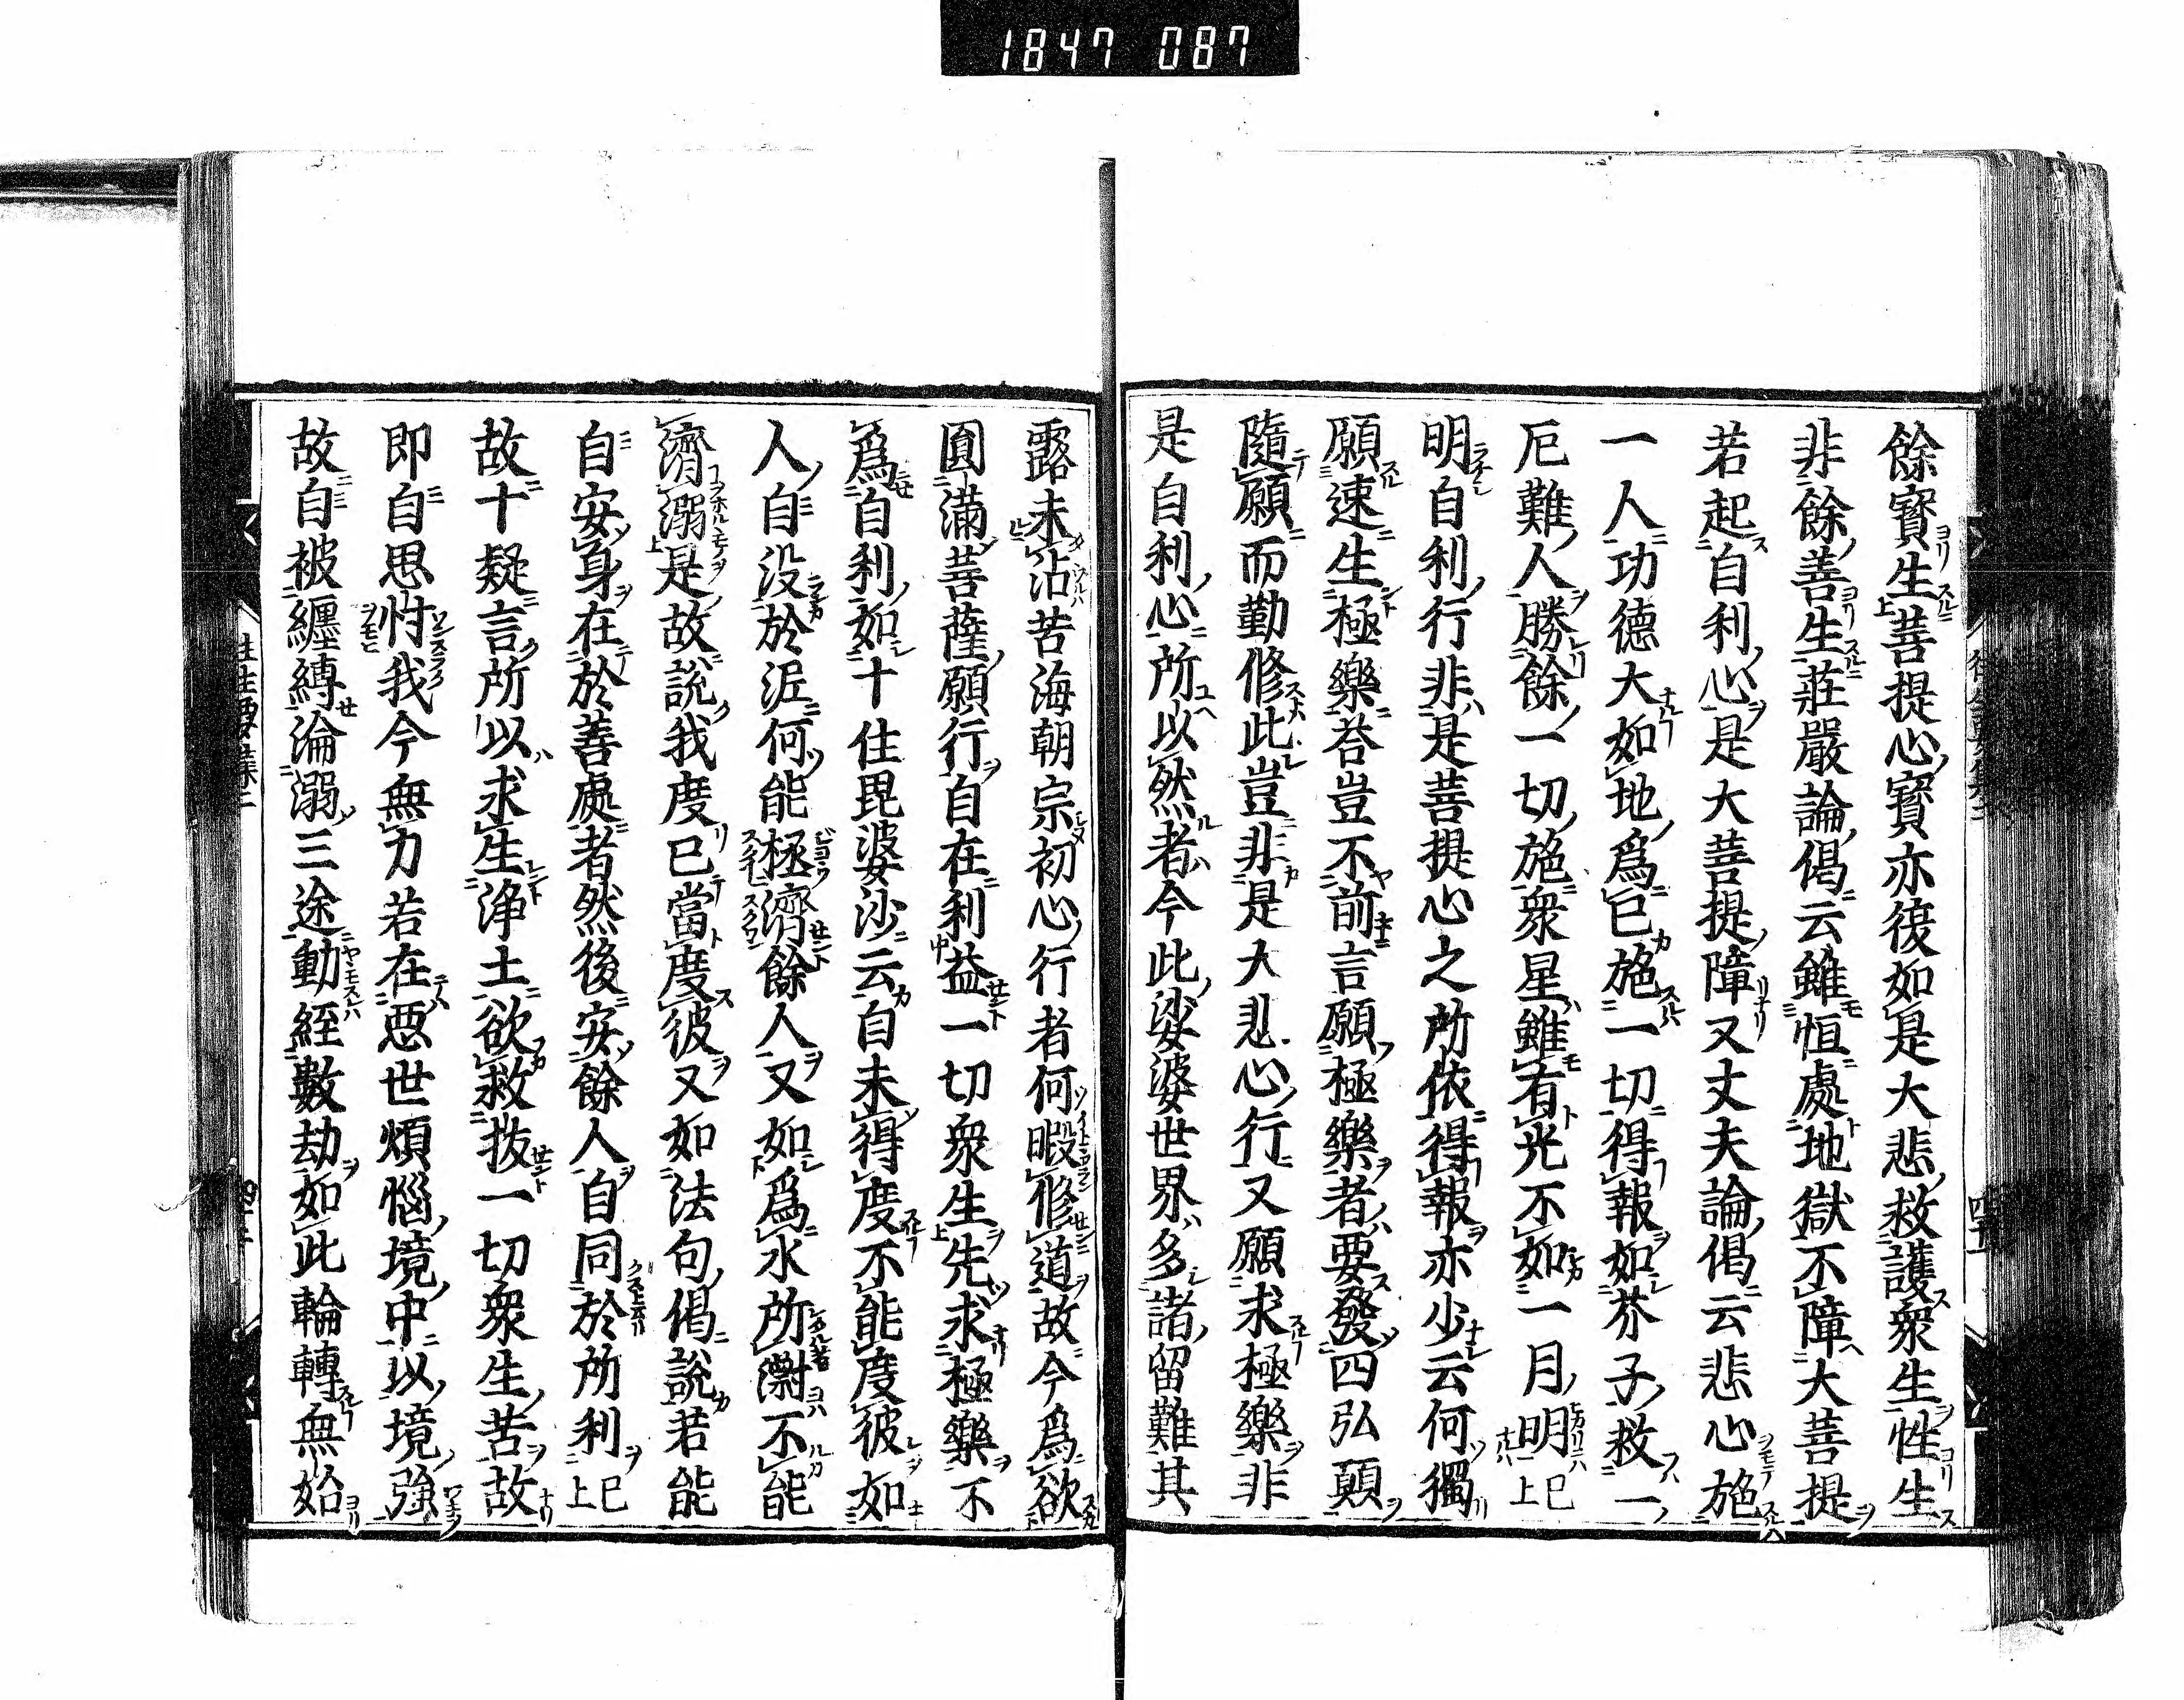 1847 087
餘寳生菩提心寳亦復如是大悲救護衆生性生
非餘善生莊嚴論偈云雖恒處地獄不障大菩提
若起自利心是大菩提障又丈夫論偈云悲心施
一人功德大如地爲已施一切得報如芥子救一
厄難人勝餘一切施衆星雖有光不如一月明已上
明自利行非是菩提心之所依得報亦少云何獨
願速生極樂荅豈不前言願極樂者要發四弘願
隨願而勤修此豈非是大悲心行又願求極樂非
是自利心所以然者今此娑婆世界多諸留難其
露未沾苦海朝宗初心行者何暇修道故今爲欲
圓滿菩薩願行自在利益一切衆生先求極樂不
爲自利如十住毘婆沙云自未得度不能度彼如
人自没於泥何能拯濟餘人又如爲水所㵱不能
濟溺是故說我度已當度彼又如法句偈說若能
自安身在於善處者然後安餘人自同於所利已上
故十疑言所以求生淨土欲救拔一切衆生苦故
即自思忖我今無力若在惡世煩惱境中以境強
故自被纏縛淪溺三途動經數劫如此輪轉無始